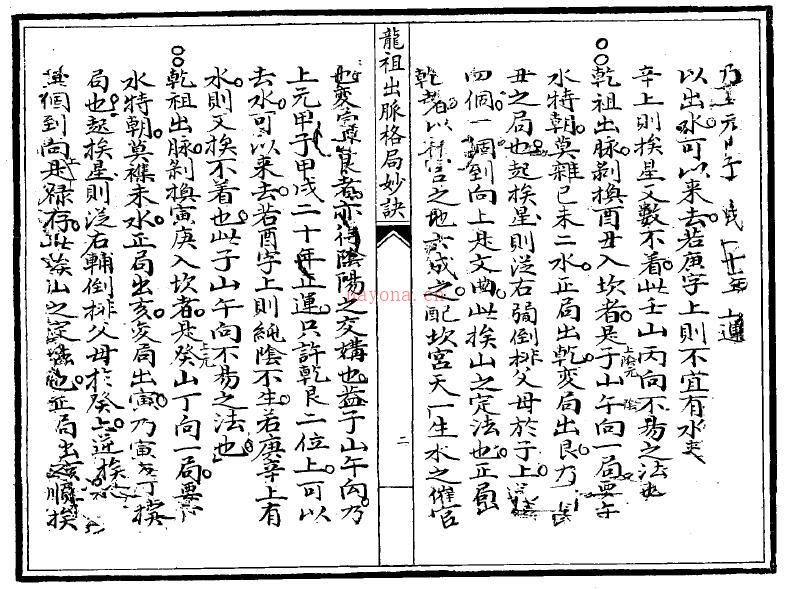 乃上元甲子 戌二十年 上運
以出水可以来去若庚字上則不宜有水来
辛上則挨星又數不着此壬山丙向不易之法也
乾祖出脉剝換酉丑入坎者是子山午向一局要午
水特朝莫雜巳未二水正局出乾变局出艮乃
丑之局也起挨星則從右弼倒排父母於子上
四個一個到向上是文曲此挨山之定法也正局出
乾者以 官之地六成之配坎宮天一生水之催官
龍祖出脉格局妙訣
二
也变 艮者亦得陰陽之交媾也益子山午向乃
上元甲子甲戌二十年正運只許乾艮二位上可以
去水可以来去若酉字上則純陰不生若庚辛上有
水則又挨不着也此子山午向不易之法也
乾祖出脉剝換寅庚入坎者是癸山丁向一局要
上元
水特朝莫雜未水正局出亥变局出寅乃寅
局也起挨星則從右輔倒排父母於癸上逆挨
個到向是祿存此挨山之定 也正局出亥順挨
nayona.cn